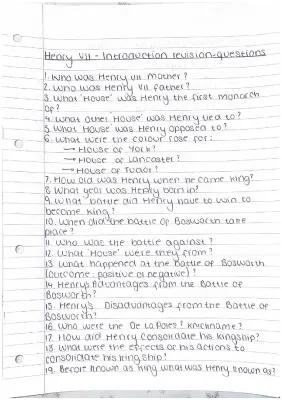 Henry VII - Introduction revision-questions
1. Who was Henry VII mother?
2. Who was Henry VII father?
3. What 'House' was Henry the first monarch
of?
4. What other House was Henry tied to?
5. What House was Henry opposed to?
6. What were the colour rose for:
→ House of York?
→ House of Lancaster?
→ House of Tudor?
7. How old was Henry when he came king?
8. What year was Henry born in?
9. What battle did Henry have to win to
become king?
10. When did the battle of Bosworth take
place?
11. Who was the battle against?
12. What 'House' were they from?
13. What happened at the Battle of Bosworth
(outcome: positive or negative)?
14. Henry's Advantages from the Battle of
Bosworth?
15. Henry's Disadvantages from the Battle of
Bosworth?
16. Who were the De La Poles? Knickname?
17. How did Henry consolidate his kingship?
18. What were the effects of his actions to
consolidate his kingship?
19. Before known as king what was Henry known as?